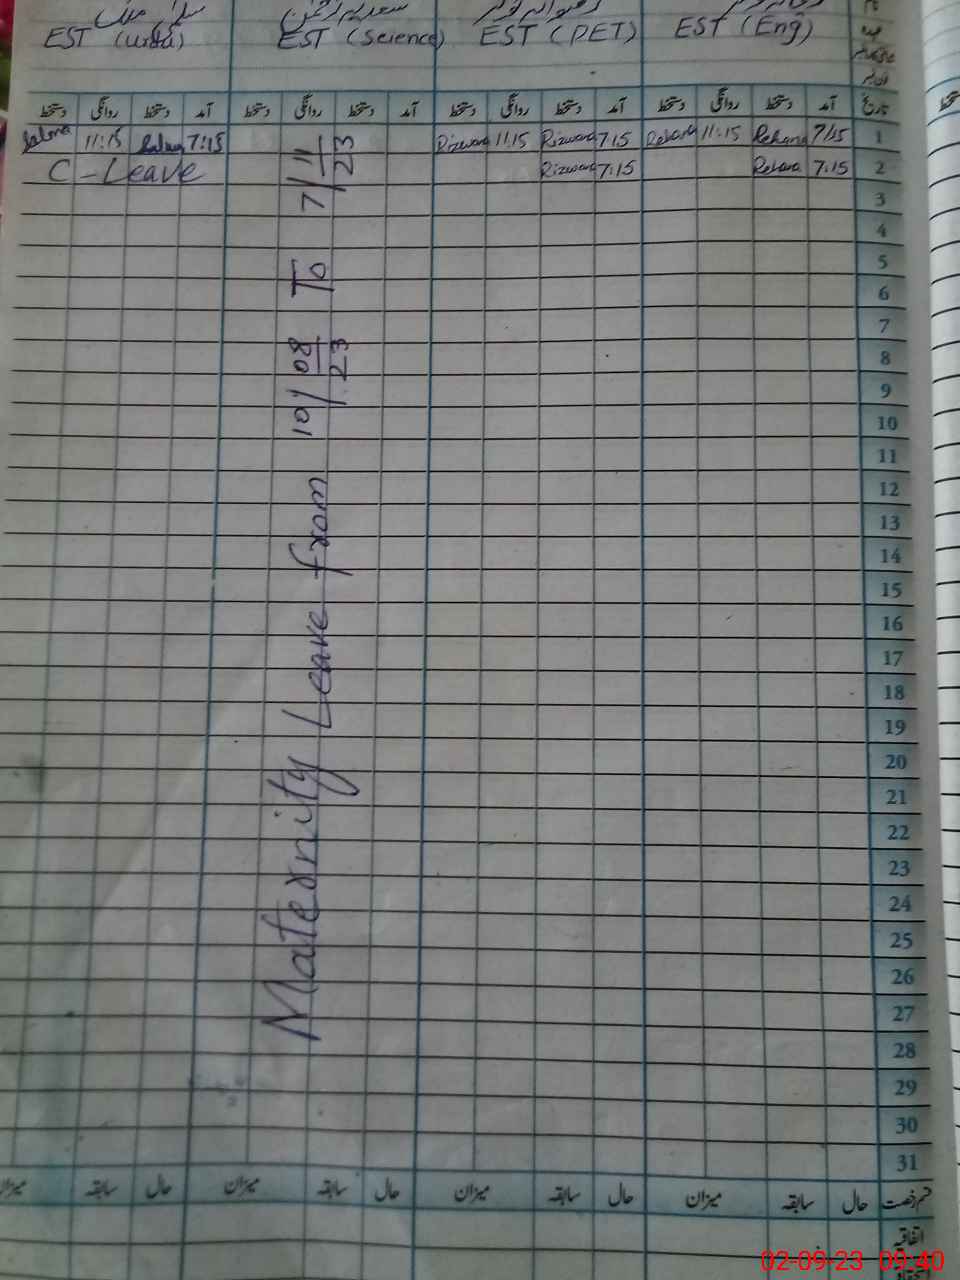 EST (Eng) EST (PET) EST (Science) EST (Urdu)
تاریخ آمد دستخط روانگی دستخط آمد دستخط روانگی دستخط آمد دستخط روانگی دستخط آمد دستخط روانگی دستخط
1 7/15 Rehana 11:15 Rehana 7:15 Rizwana 11:15 Rizwana 7:15 Salma 11:15 Salma
2 7:15 Rehana 7:15 Rizwana C - Leave
Maternity Leave from 10/08/23 To 7/11/23
3
4
5
6
7
8
9
10
11
12
13
14
15
16
17
18
19
20
21
22
23
24
25
26
27
28
29
30
31
قسم رخصت حال سابقہ میزان حال سابقہ میزان حال سابقہ میزان حال سابقہ میزان
اتفاقیہ
02-09-23 09:40